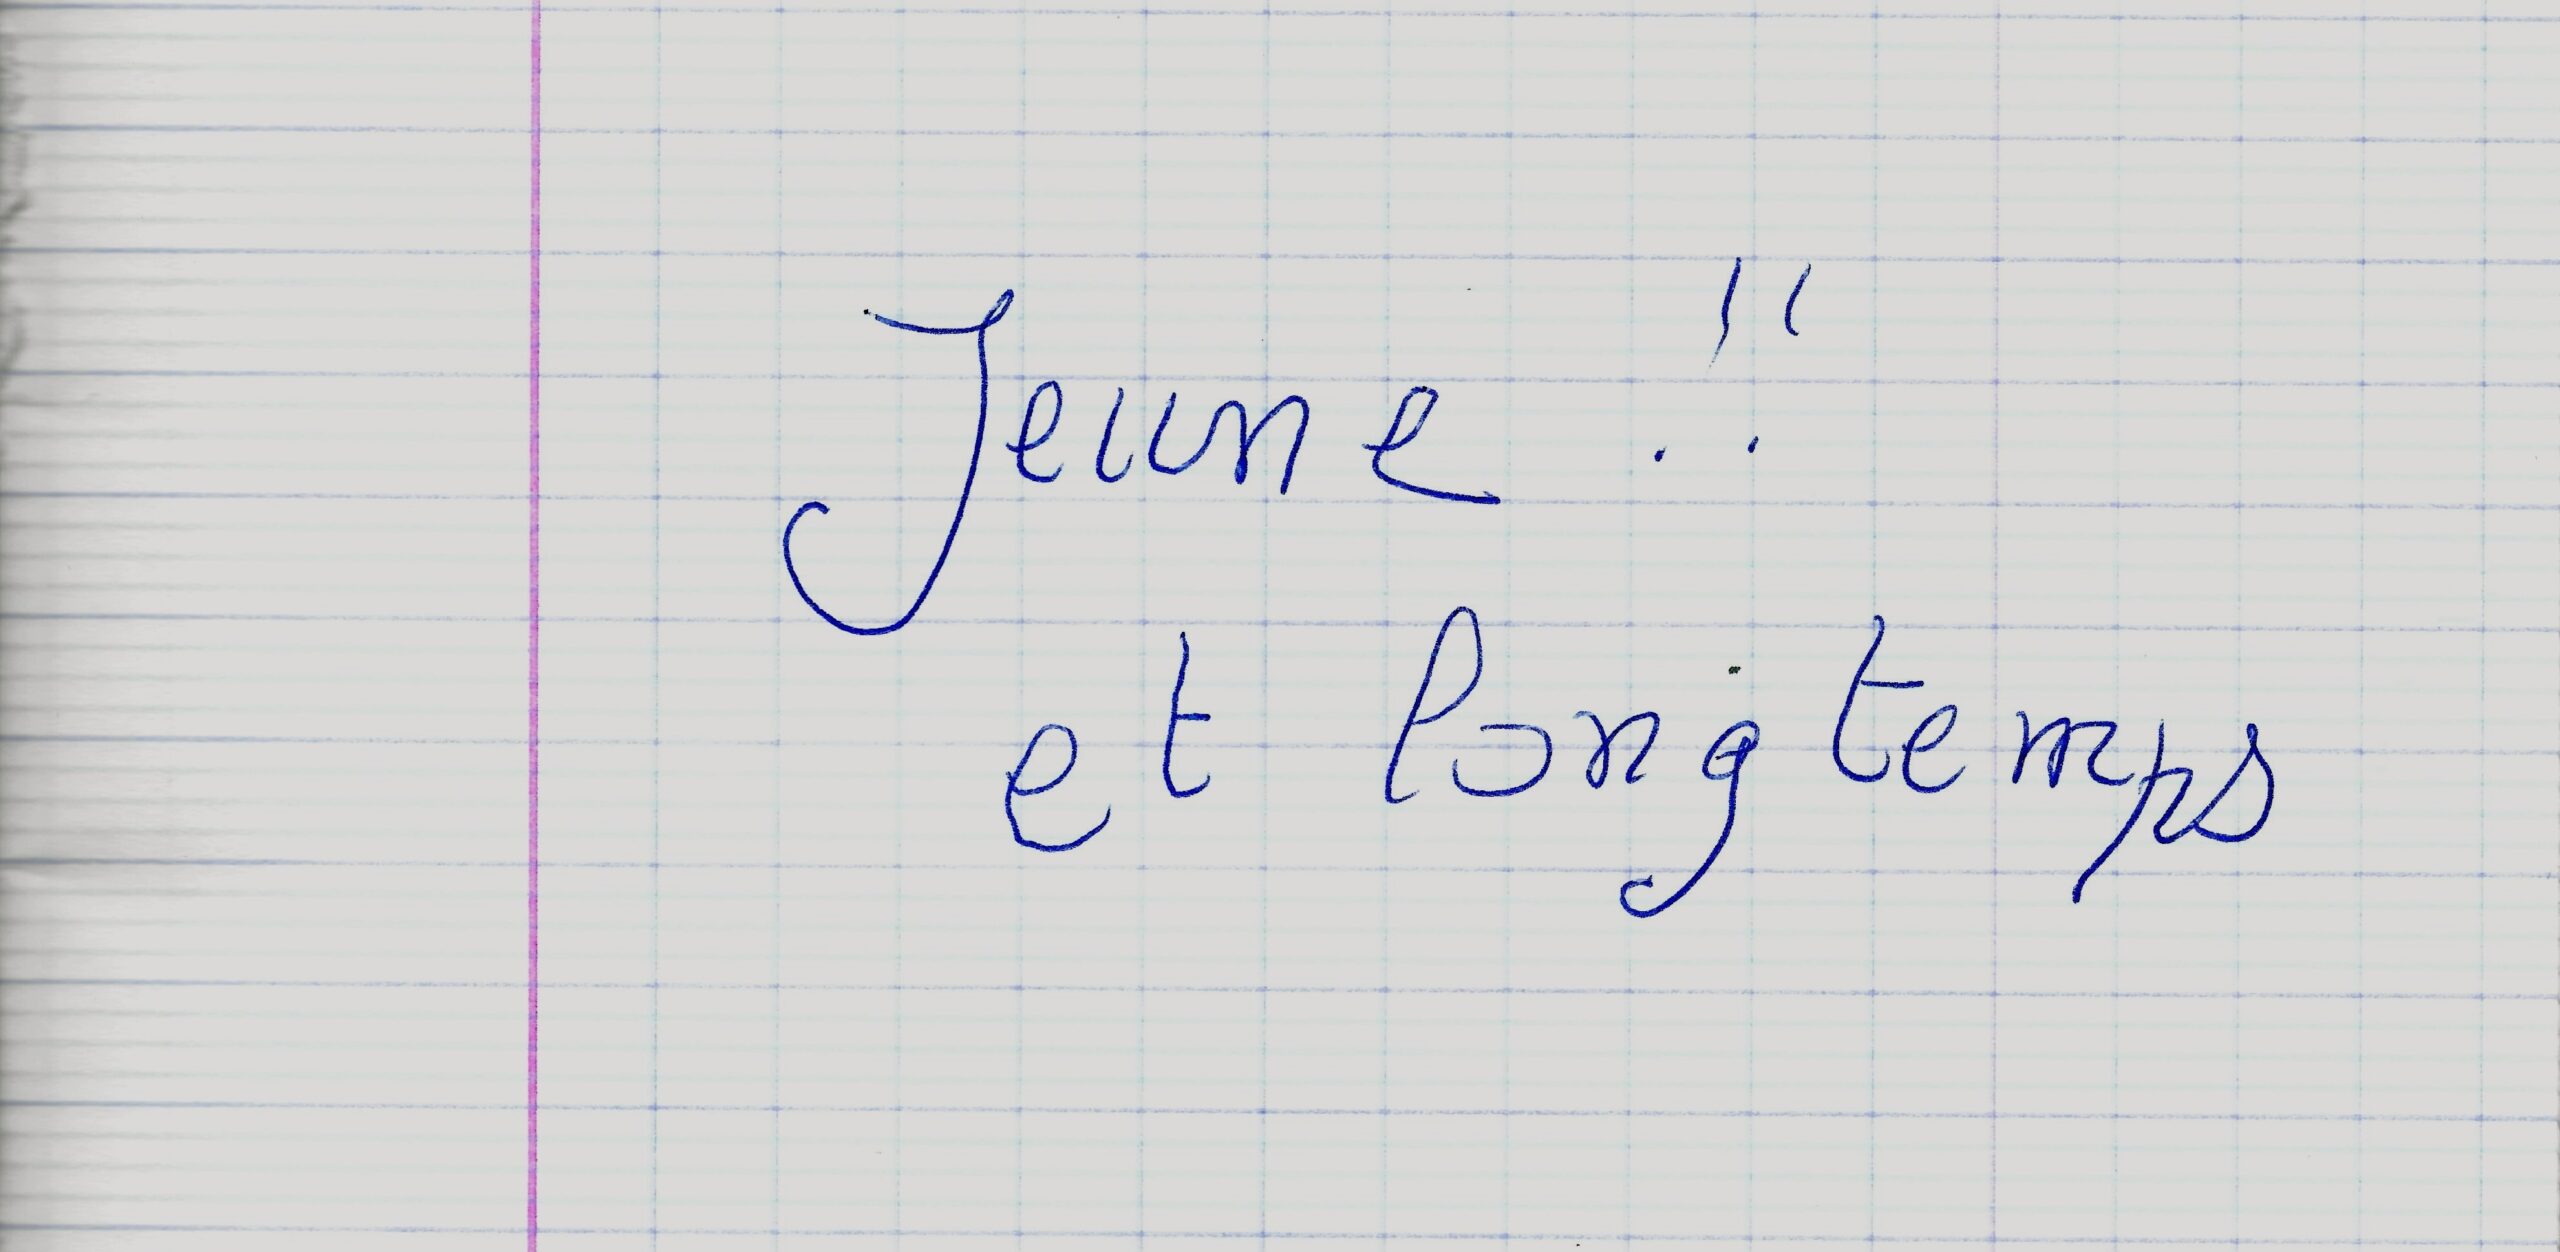 Jeune !!
et longtemps